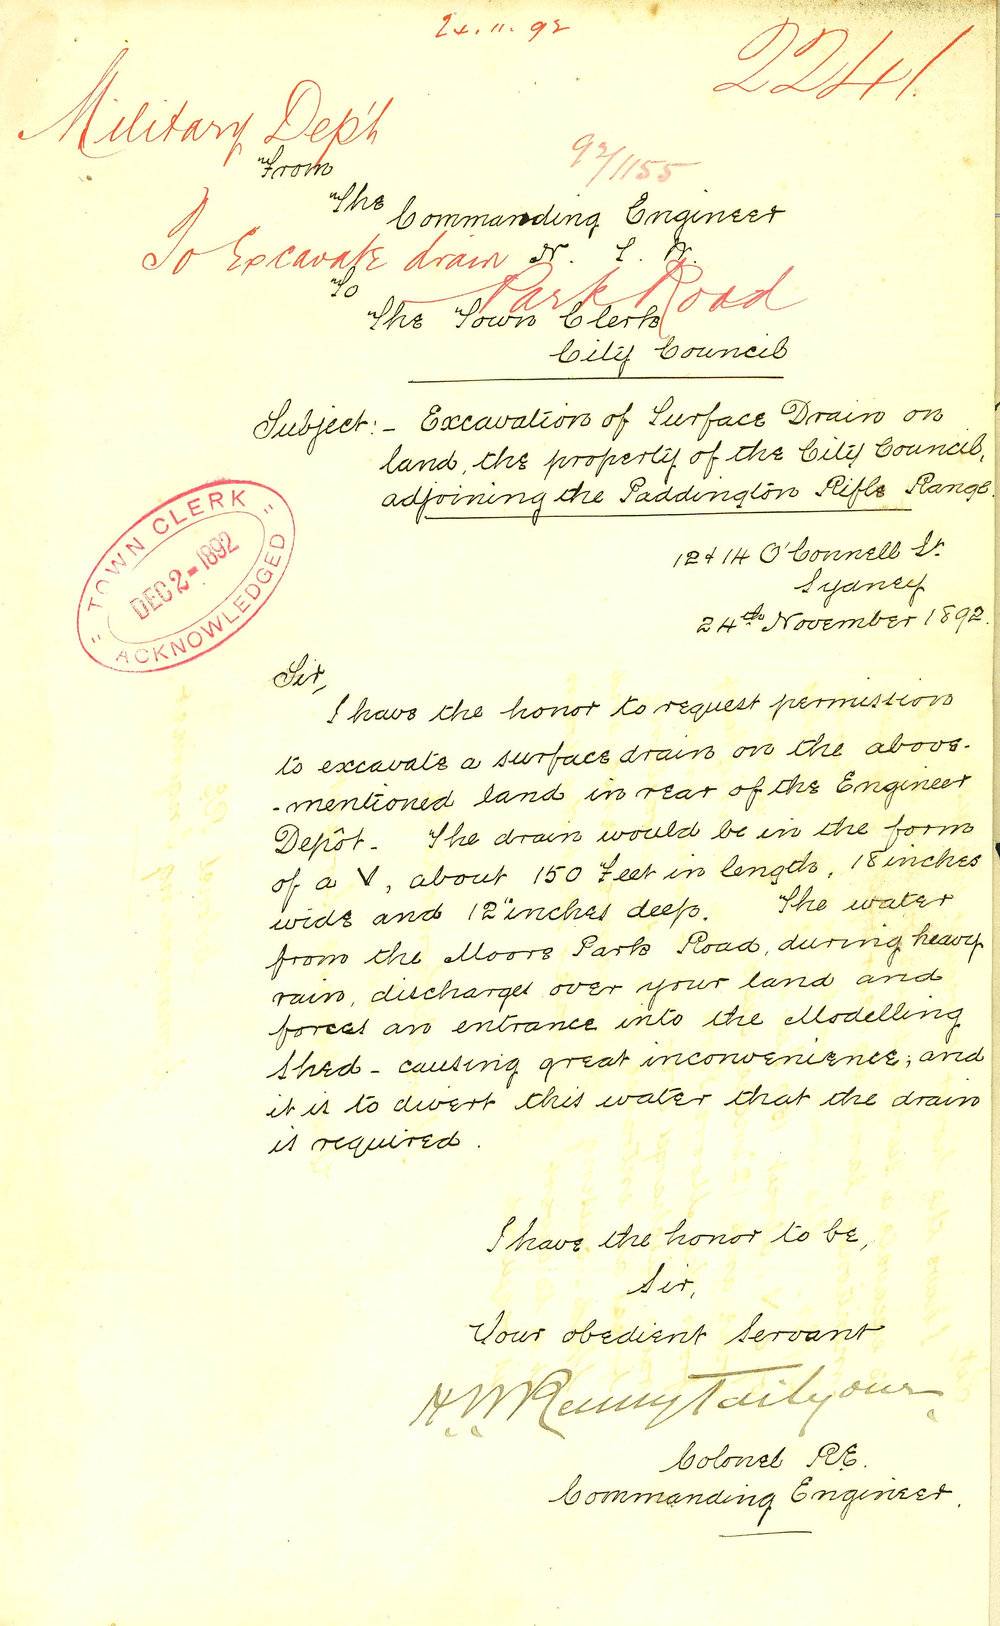 24.11.92
2241.
Military Dep't
92/1155
From
The
Commanding Engineer
N. S. W.
To Excavate drain
Park Road
To
The Town Clerk
City Council
Subject:- Excavation of Surface Drain on
land, the property of the City Council,
adjoining the Paddington Rifle Range.
TOWN CLERK
DEC 2-1892
ACKNOWLEDGED
12 & 14 O'Connell St.
Sydney
24th November 1892.
Sir,
I have the honor to request permission
to excavate a surface drain on the above-
-mentioned land in rear of the Engineer
Depôt. The drain would be in the form
of a V, about 150 Feet in length, 18 inches
wide and 12" inches deep. The water
from the Moore Park Road, during heavy
rain, discharges over your land and
forces an entrance into the Modelling
Shed - causing great inconvenience; and
it is to divert this water that the drain
is required.
I have the honor to be,
Sir,
Your obedient Servant
H W Renny Tailyour
Colonel R.E.
Commanding Engineer.